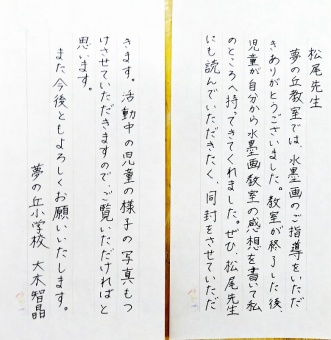 松尾先生
夢の丘教室では、水墨画のご指導をいただ
きありがとうございました。教室が終了した後、
児童が自分から水墨画教室の感想を書いて私
のところへ持ってきてくれました。ぜひ、松尾先生
にも読んでいただきたく、同封をさせていただ
きます。活動中の児童の様子の写真もつ
けさせていただきますのでご覧いただければと
思います。
また今後ともよろしくお願いいたします。
夢の丘小学校 大木智晶